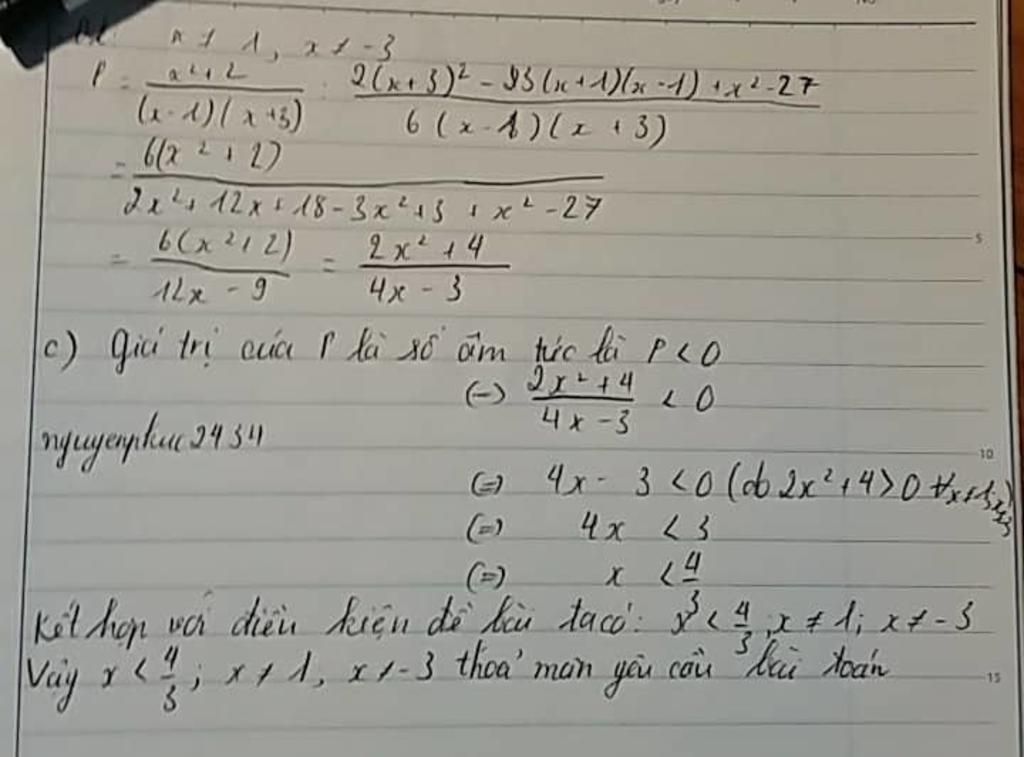 x ≠ 1, x ≠ -3
P = \frac{x²+2}{(x-1)(x+3)} : \frac{2(x+3)² - 3(x+1)(x-1) + x² - 27}{6(x-1)(x+3)}
= \frac{6(x²+2)}{2x²+12x+18-3x²+3+x²-27}
= \frac{6(x²+2)}{12x-9} = \frac{2x²+4}{4x-3}
c) Giá trị của P là số âm tức là P < 0
(=) \frac{2x²+4}{4x-3} < 0
nguyenphuc2434
(=) 4x - 3 < 0 (do 2x²+4 > 0 ∀x≠1; x≠-3)
(=) 4x < 3
(=) x < \frac{4}{3}
Kết hợp với điều kiện đề bài ta có: x < \frac{4}{3}; x ≠ 1; x ≠ -3
Vậy x < \frac{4}{3}; x ≠ 1, x ≠ -3 thoả mãn yêu cầu bài toán
5
10
15